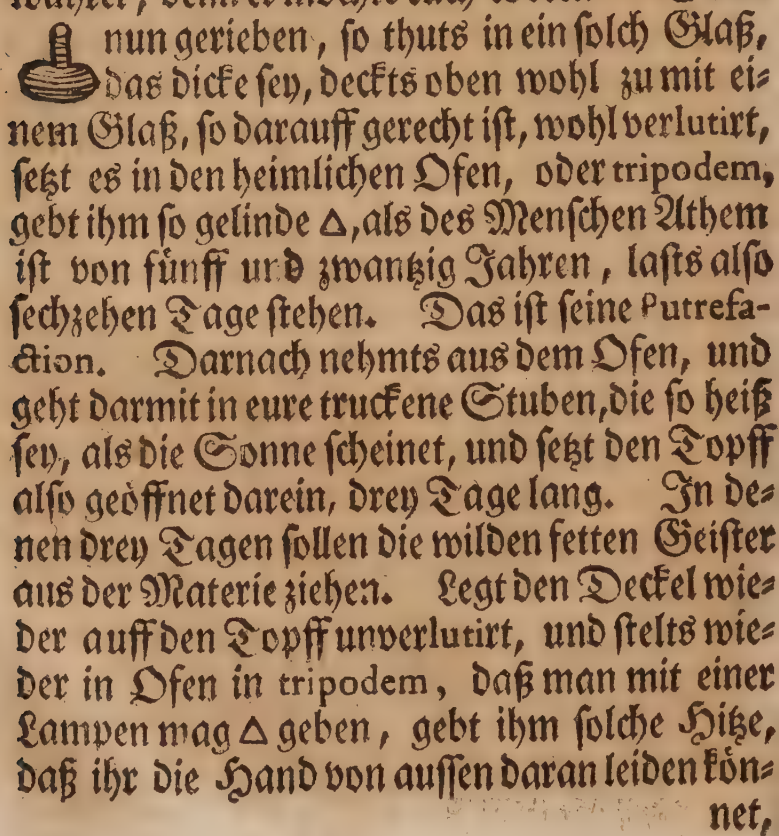 nun gerieben, so thuts in ein solch Glaß,
das dicke sey, deckts oben wohl zu mit ei⸗
nem Glaß, so darauff gerecht ist, wohl verlutirt,
setzt es in den heimlichen Ofen, oder tripodem,
gebt ihm so gelinde △, als des Menschen Athem
ist von fünff und zwantzig Jahren, lasts also
sechzehen Tage stehen. Das ist seine Putrefa-
ction. Darnach nehmts aus dem Ofen, und
geht darmit in eure truckene Stuben, die so heiß
sey, als die Sonne scheinet, und setzt den Topff
also geöffnet darein, drey Tage lang. In de⸗
nen drey Tagen sollen die wilden fetten Geister
aus der Materie ziehen. Legt den Deckel wie⸗
der auff den Topff unverlutirt, und stelts wie⸗
der in Ofen in tripodem, daß man mit einer
Lampen mag △ geben, gebt ihm solche Hitze,
daß ihr die Hand von aussen daran leiden kön⸗
net,